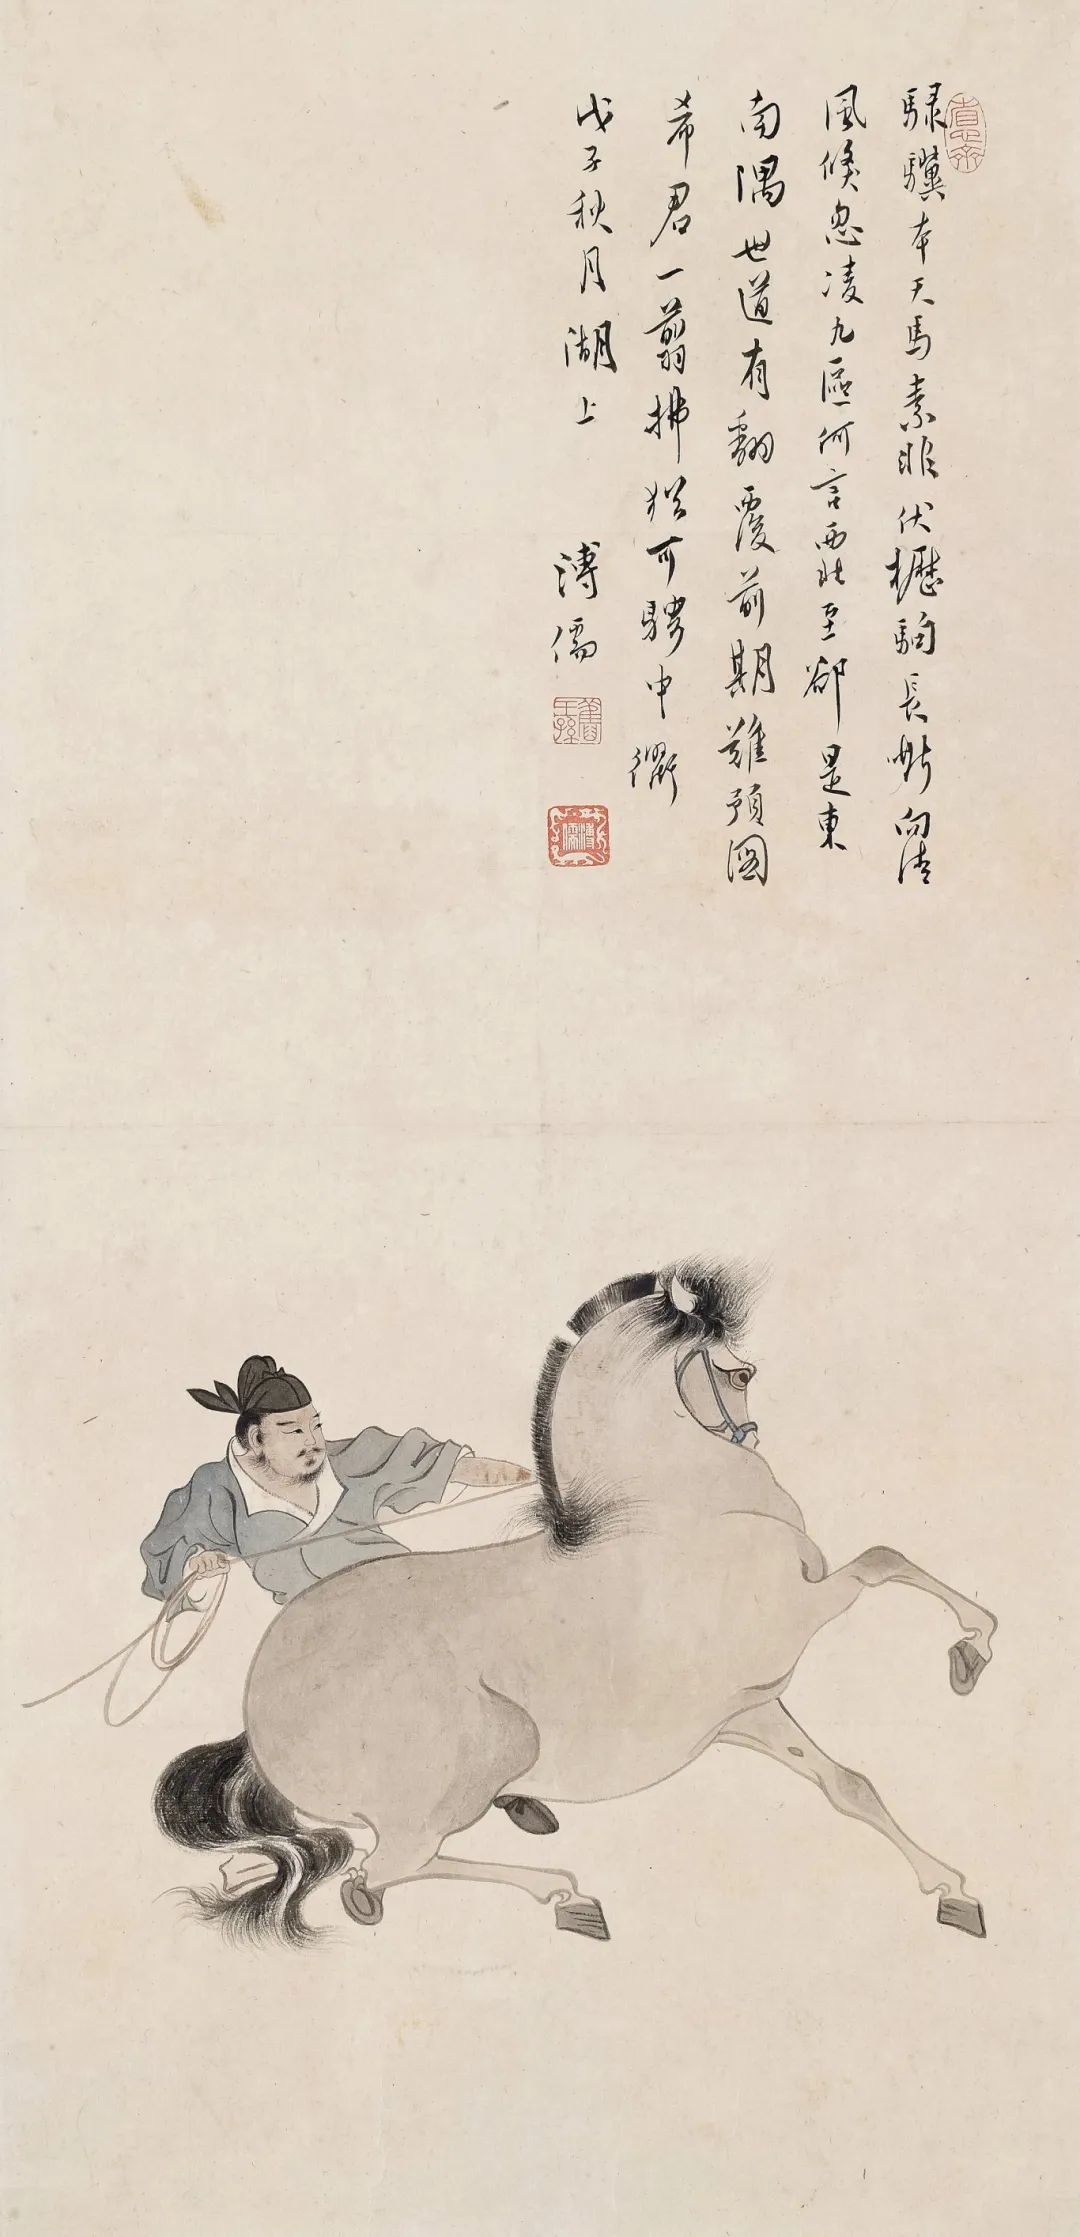 騄驥本天馬素非伏櫪駒長嘶向清
風倏忽凌九區何言西北至卻是東
南隅世道有翻覆前期難預圖
希君一翦拂猶可騁中衢
戊子秋月湖上
溥儒
舊王孫
溥儒